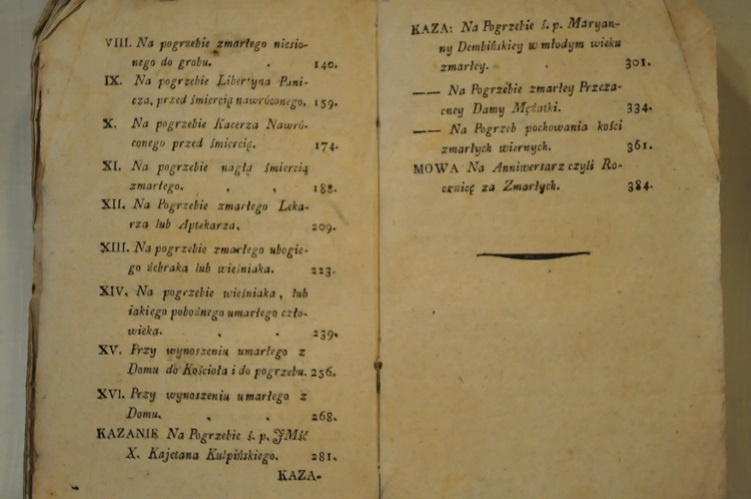 VIII. Na pogrzebie zmarłego niesio-
nego do grobu. . 140.
IX. Na pogrzebie Libertyna Pani-
cza, przed śmiercią nawróconego. 159.
X. Na pogrzebie Kacerza Nawró-
conego przed śmiercią. 174.
XI. Na pogrzebie nagłą śmiercią
zmarłego. . . 188.
XII. Na Pogrzebie zmarłego Leka-
rza lub Aptekarza. 209.
XIII. Na pogrzebie zmarłego ubogie-
go żebraka lub wieśniaka. 223.
XIV. Na pogrzebie wieśniaka, lub
iakiego pobożnego umarłego czło-
wieka. . . 239.
XV. Przy wynoszeniu umarłego z
Domu do Kościoła i do pogrzebu. 256.
XVI. Przy wynoszeniu umarłego z
Domu. . . 268.
KAZANIE Na Pogrzebie ś. p. JMść
X. Kajetana Kulpińskiego. 281.
KAZA-
KAZA: Na Pogrzebie ś. p. Maryan-
ny Dembińskiey w młodym wieku
zmarłey. . 301.
—— Na Pogrzebie zmarłey Przeza-
cney Damy Mężatki. 334.
—— Na Pogrzeb pochowania kości
zmarłych wiernych. 361.
MOWA Na Anniwersarz czyli Ro-
cznicę za Zmarłych. 384.